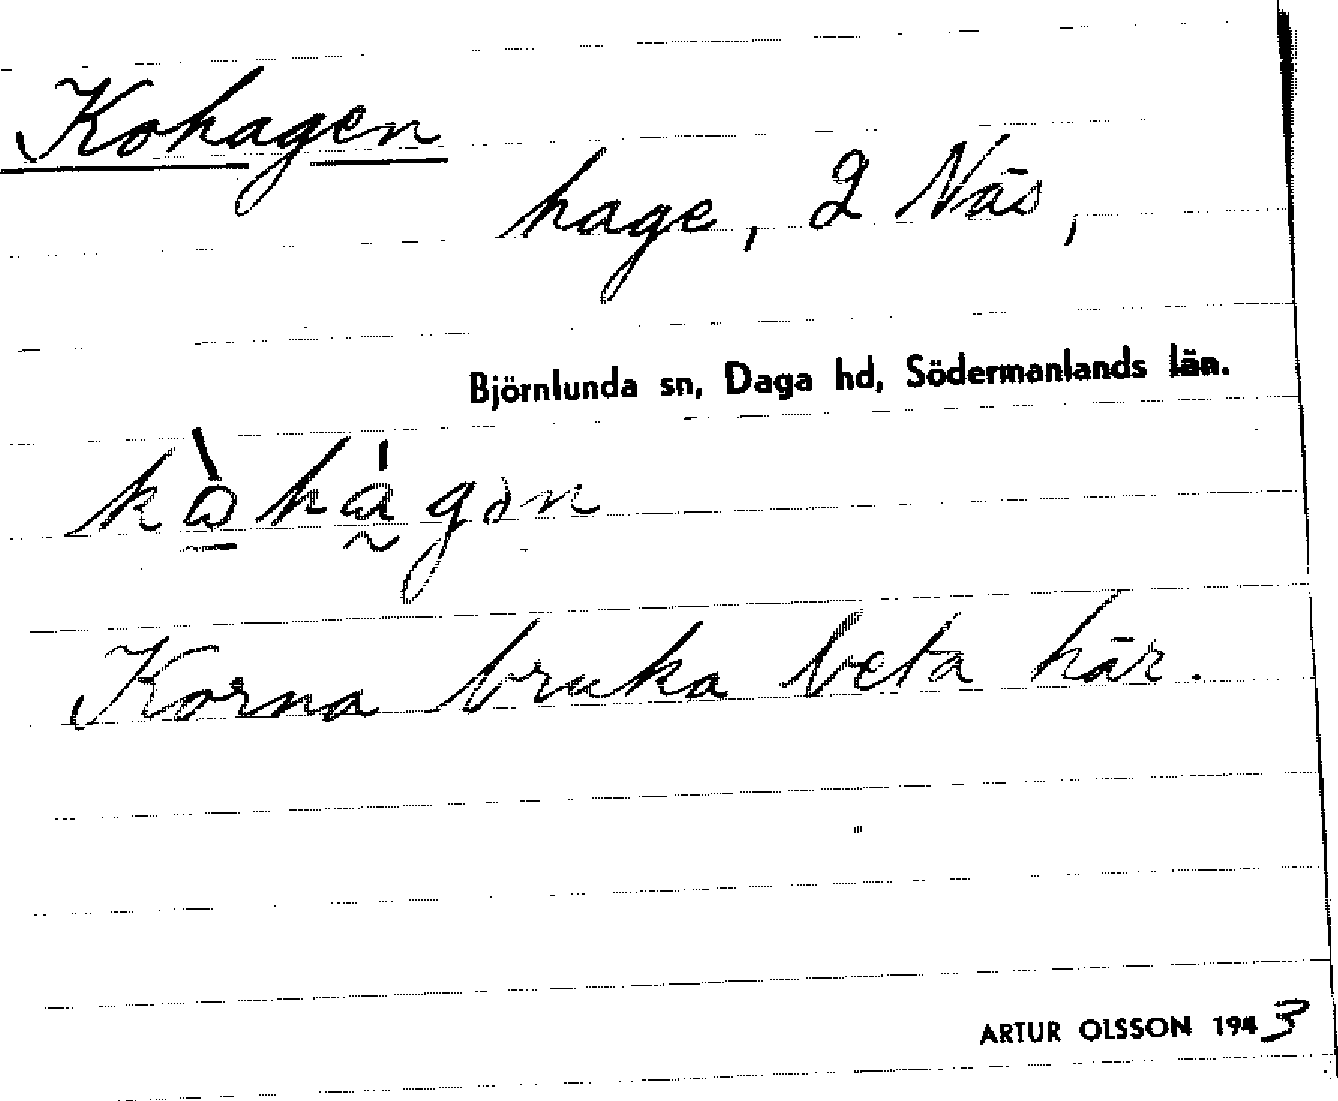 Kohagen
hage, 2 Näs,
Björnlunda sn, Daga hd, Södermanlands län.
kòhágən
Korna bruka beta här.
ARTUR OLSSON 1943